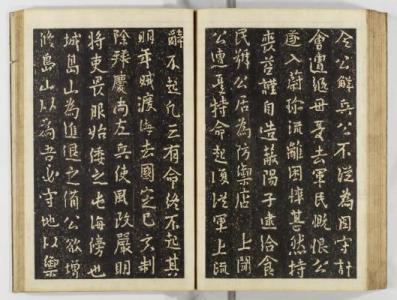 令公解兵公不從為固守計
會遭繼母喪去軍民慨恨公
遂入蔚珍流離困瘁甚然持
喪益謹自造蔽陽子逮給食
民移公居為防禦 上聞
公連喪特命起復從軍上疏
辭不起凡三有命終不起其
明年賊渡海去國定已乃制
除拜慶尚左兵使風政嚴明
將吏畏服始倭之屯海傍也
城島山為進退之備公欲增
修島山以為吾必守地以禦